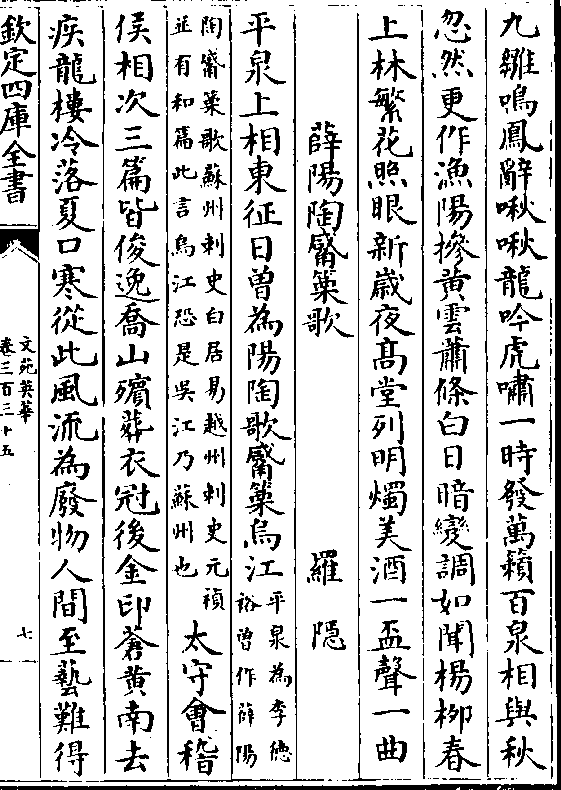 九雛鳴鳳辭啾啾龍吟虎嘯一時發萬籟百泉相與秋
忽然更作漁陽摻黃雲蕭條白日暗變調如聞楊柳春
上林繁花照眼新歲夜髙堂列明燭美酒一盃聲一曲
薛陽陶觱篥歌 羅隱
平泉上相東征日曽為陽陶歌觱篥烏江平泉為李徳
裕曽作薛陽
陶觱篥歌蘇州刺史白居易越州刺史元稹
並有和篇此言烏江恐是吳江乃蘇州也太守會稽
侯相次三篇皆俊逸喬山殯葬衣冠後金印蒼黃南去
疾龍樓冷落夏口寒從此風流為廢物人間至藝難得
欽定四庫全書
文苑英華
卷三百三十五
七